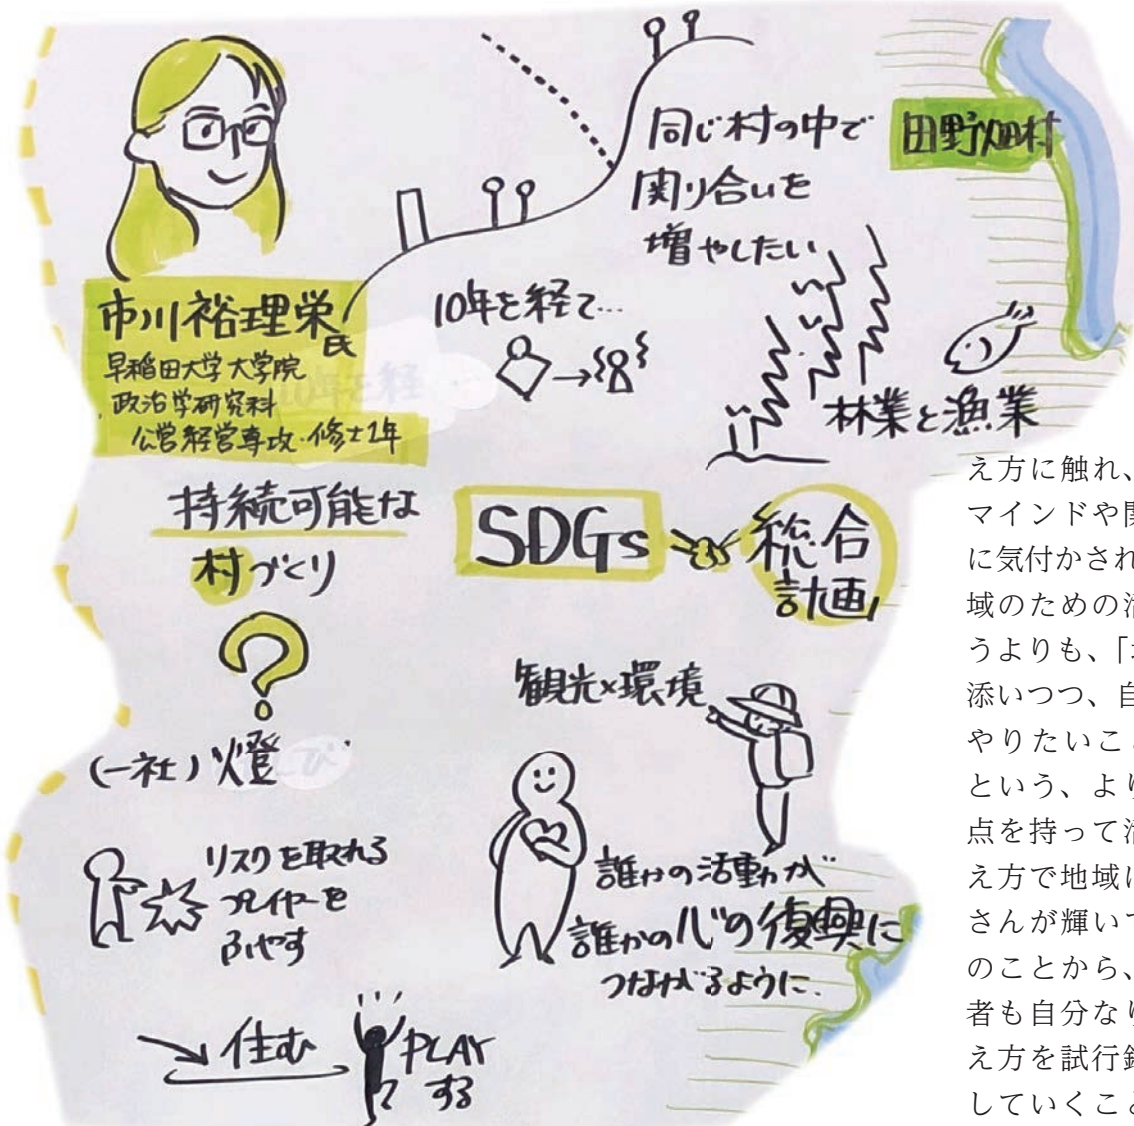 同じ村の中で
関り合いを
増やしたい
田野畑村
市川裕理栄氏
早稲田大学大学院
政治学研究科
公営経営専攻・修士1年
10年を経て…
林業と漁業
持続可能な
村づくり
SDGs
総合
計画
(一社)燈
観光×環境
リスクを取れる
プレイヤーを
ふやす
誰かの活動が
誰かの心の復興に
つながるように.
住む
PLAY
する
え方に触れ、
マインドや関
に気付かされ
域のための活
うよりも、「
添いつつ、自
やりたいこ
という、より
点を持って活
え方で地域に
さんが輝いて
のことから、
者も自分なり
え方を試行錯
していくこと